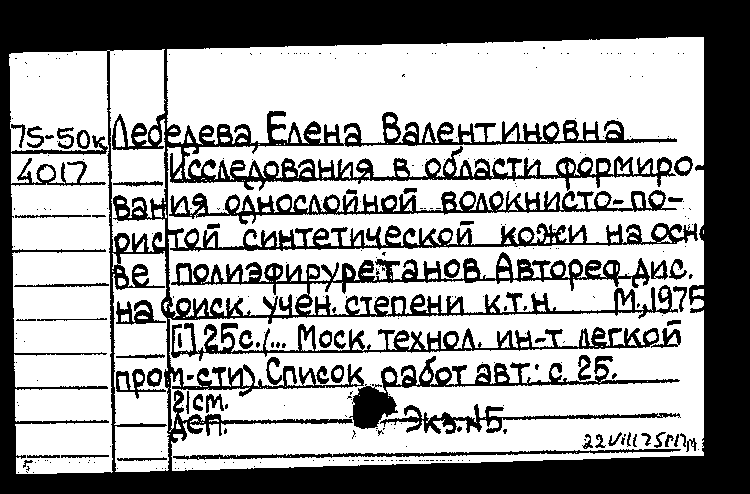 75-50к Лебедева, Елена Валентиновна
4017 Исследования в области формиро-
вания однослойной волокнисто-по-
ристой синтетической кожи на осно
ве полиэфируретанов. Автореф. дис.
на соиск. учен. степени к.т.н. М., 1975
[1], 25с. (... Моск. технол. ин-т легкой
пром-сти). Список работ авт.: с. 25.
21см.
Деп. Экз. №5.
22 VIII 75